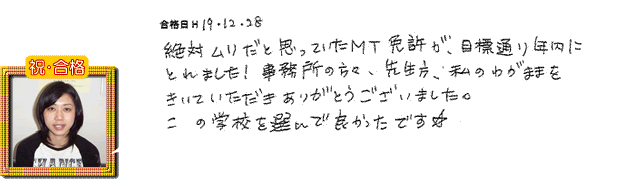 合格日 H 19・12・28
祝・合格
絶対ムリだと思っていたMT免許が、目標通り年内に
とれました!事務所の方々、先生方、私のわがままを
きいていただきありがとうございました。
この学校を選んで良かったです☆